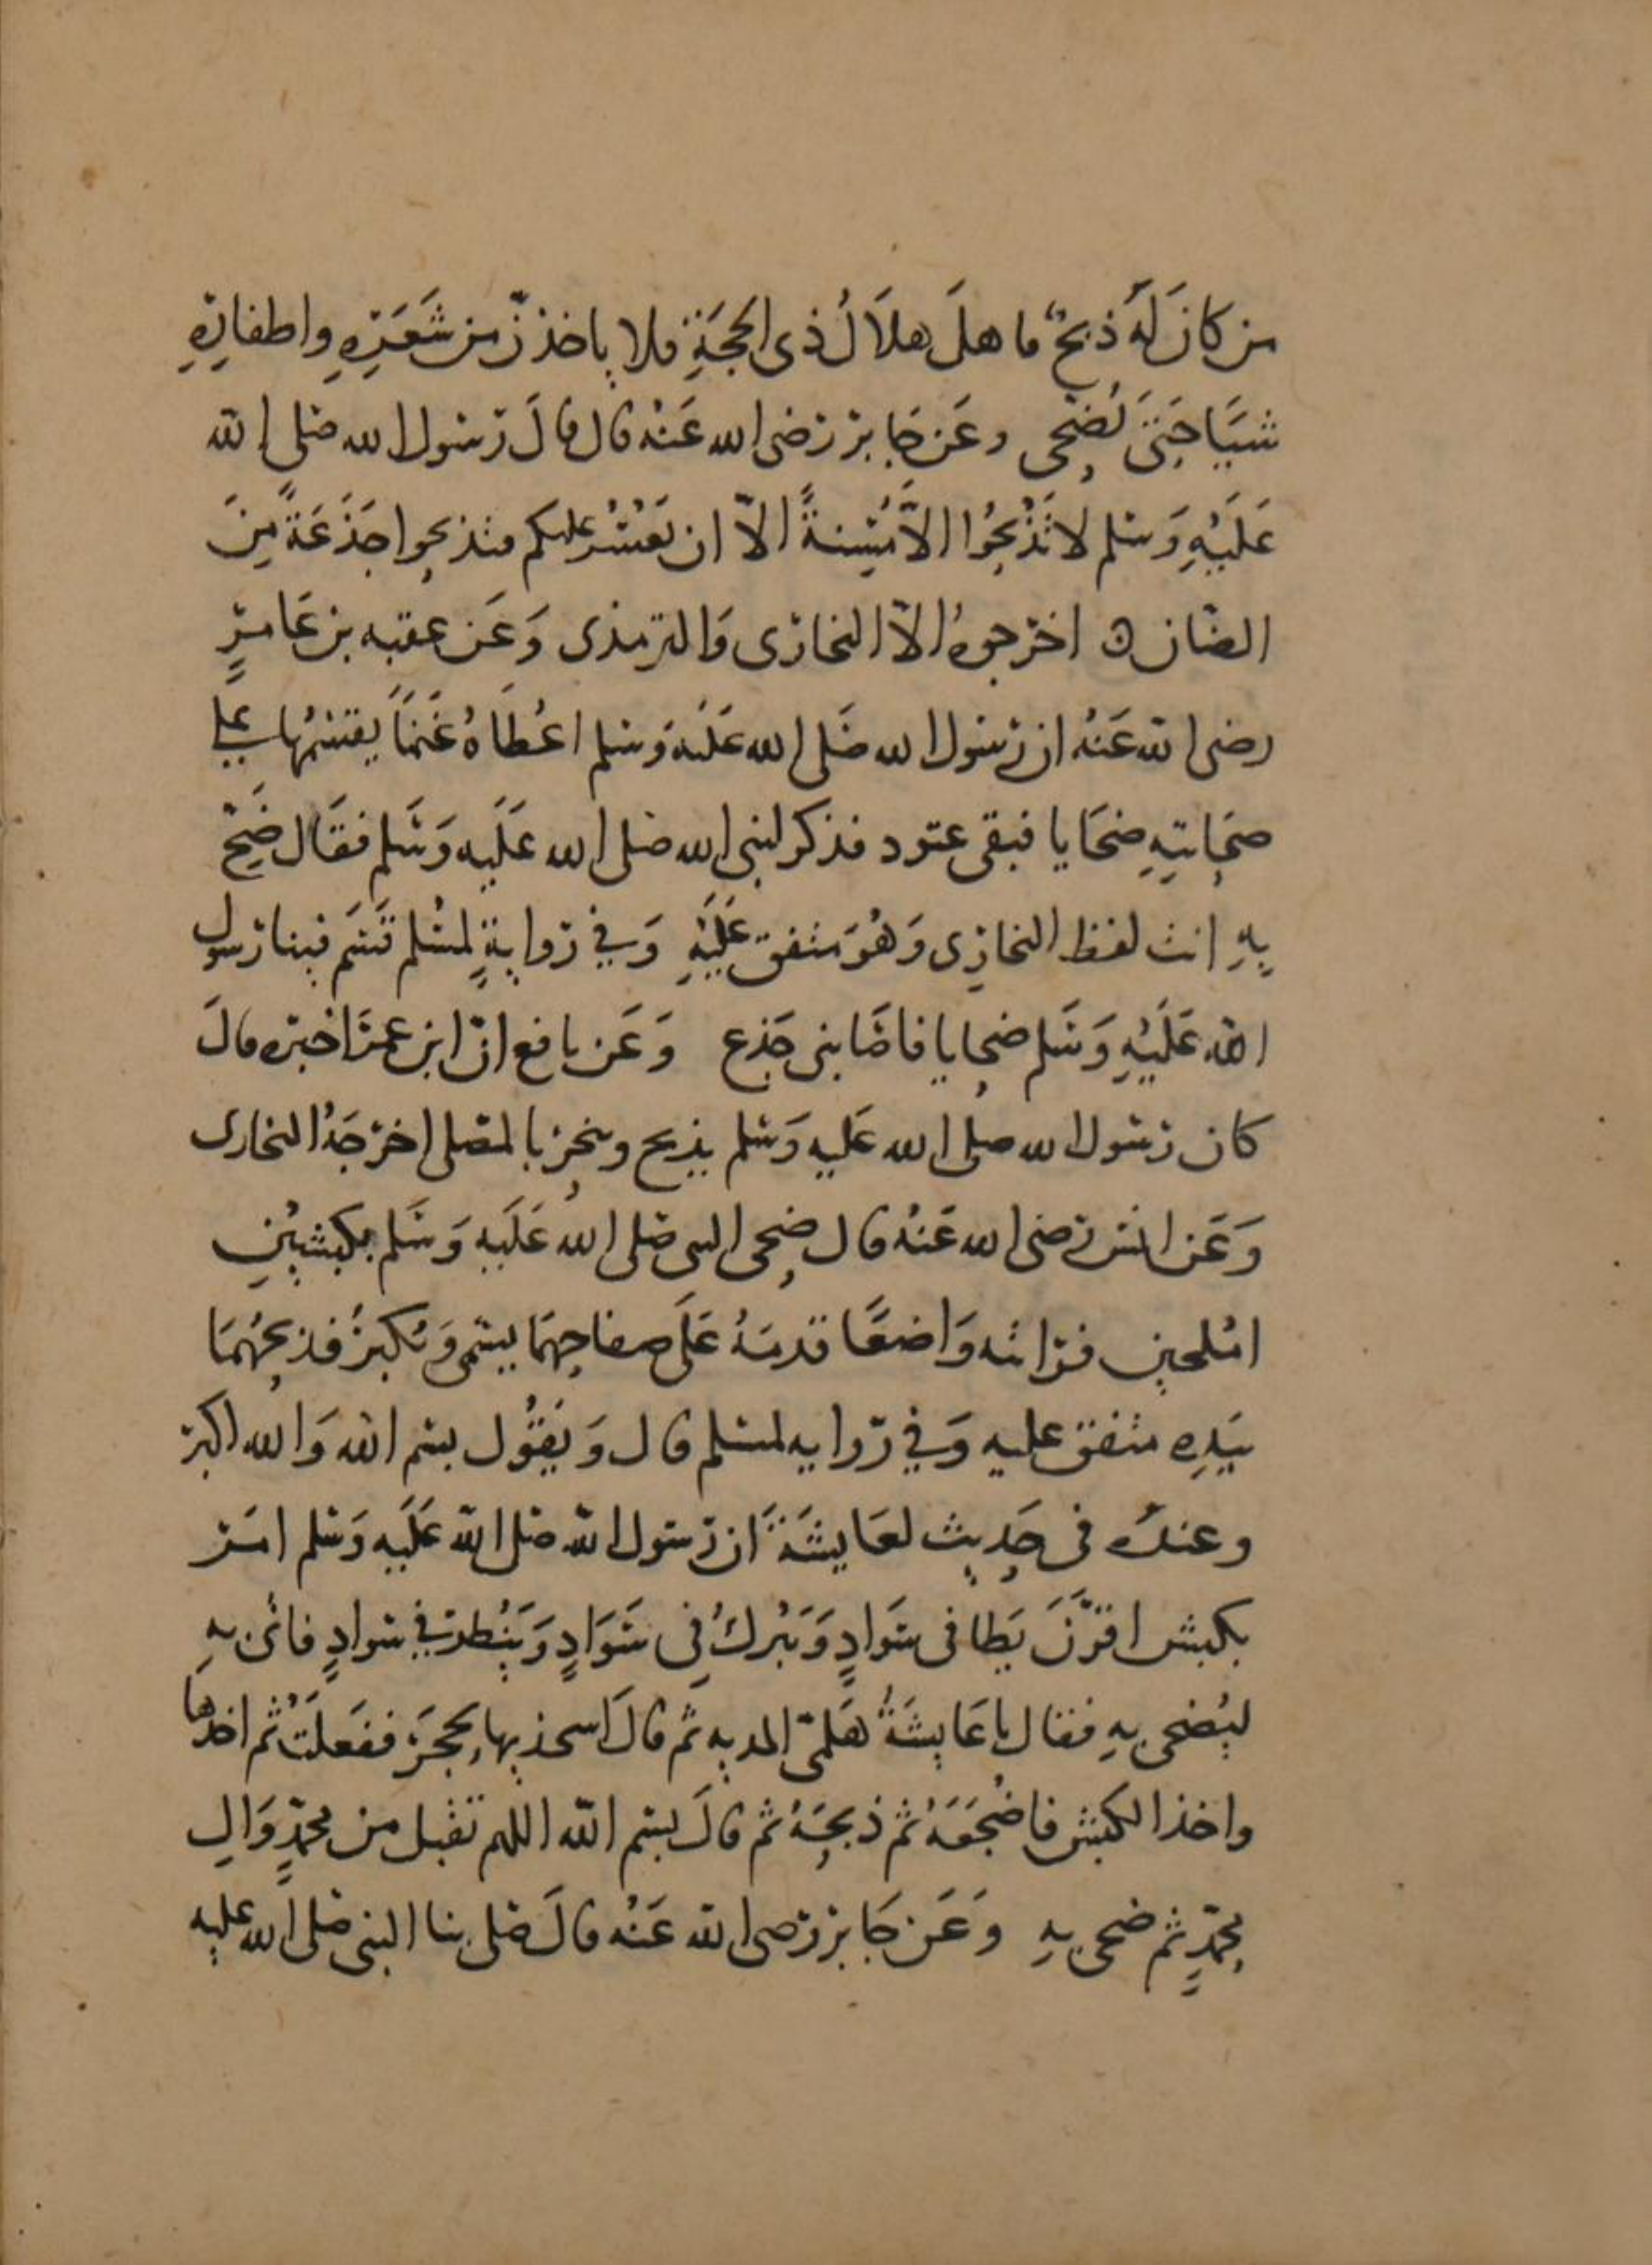 من كانَ لَهُ ذبحٌ فاهلَ هلاَلُ ذى الحجَةِ فلا ياخذنّ من شَعَرِهِ واظفارِهِ
شيَأ حَتىَ يُضحى وعَن جَابر رَضى الله عَنه قال قالَ رَسول الله صَلى الله
عَلَيْهِ وَسَلم لا تَذْبَحُوا الاَّ مُسِنةً الاّ ان يَعْسُرَ عليكم فتذبحوا جَذَعَةً مِنَ
الضَان ه اخرجوهُ الاّ البخارى وَالترمذى وَعَن عقبه بن عَامرٍ
رضى الله عَنهُ ان رَسول الله صَلى الله عَلَيْهِ وَسلم اعْطَاهُ غَنمَاً يقسمُها على
صَحَابتِهِ ضحَايا فبقى عتود فذكر لنبى الله صَلى الله عَلَيه وَسَلم فقَال ضَحّ
بِهِ انت لفظ البخارِى وَهُوَ متفق عَلَيْهِ وَفي رَوايةٍ لمسْلم قَسَم فينا رَسول
الله عَلَيْهِ وَسَلم ضحايا فاصَابنى جَذع وَعَن نافع انّ ابن عمَر اخبره قالَ
كان رَسول الله صلى الله عَليه وَسَلم يذبح وينحر بالمصَلى اخرَجَهُ البخارى
وَعَن انس رَضى الله عَنهُ قال ضحى النبى صَلى اللهُ عَلَيه وَسَلم بكبشيْنِ
امْلحين فرَاته وَاضعًا قدمَهُ عَلَى صفاحِهمَا يسَمى وَيُكبرُ فذبحَهُمَا
بيَدِهِ متفق عليه وَفي رَوايه لمسلم قال وَيَقُول بسم الله وَالله اكبر
وعندَه فى حَديث لعَايشَةَ ان رَسول الله صَلى الله عَلَيه وَسَلم امَر
بكبش اقرَنَ يَطا فى سَوادٍ وَيَبْركُ فِى سَوَادٍ وَيَنْظر في سَوادٍ فاتى بهِ
ليُضحى بهِ فقال يا عَايشَةُ هَلمّى المديه ثم قالَ اسحذيها بحجَرَ ففَعلَتُ ثم اخذها
واخذ الكبش فاضْجَعَهُ ثم ذبحَهُ ثم قالَ بسم الله اللهم تقبل من محمدٍ وَالِ
محمدٍ ثم ضحى بهِ وَعَن جَابر رَضى الله عَنهُ قالَ صَلى بنا النبى صَلى الله عليه